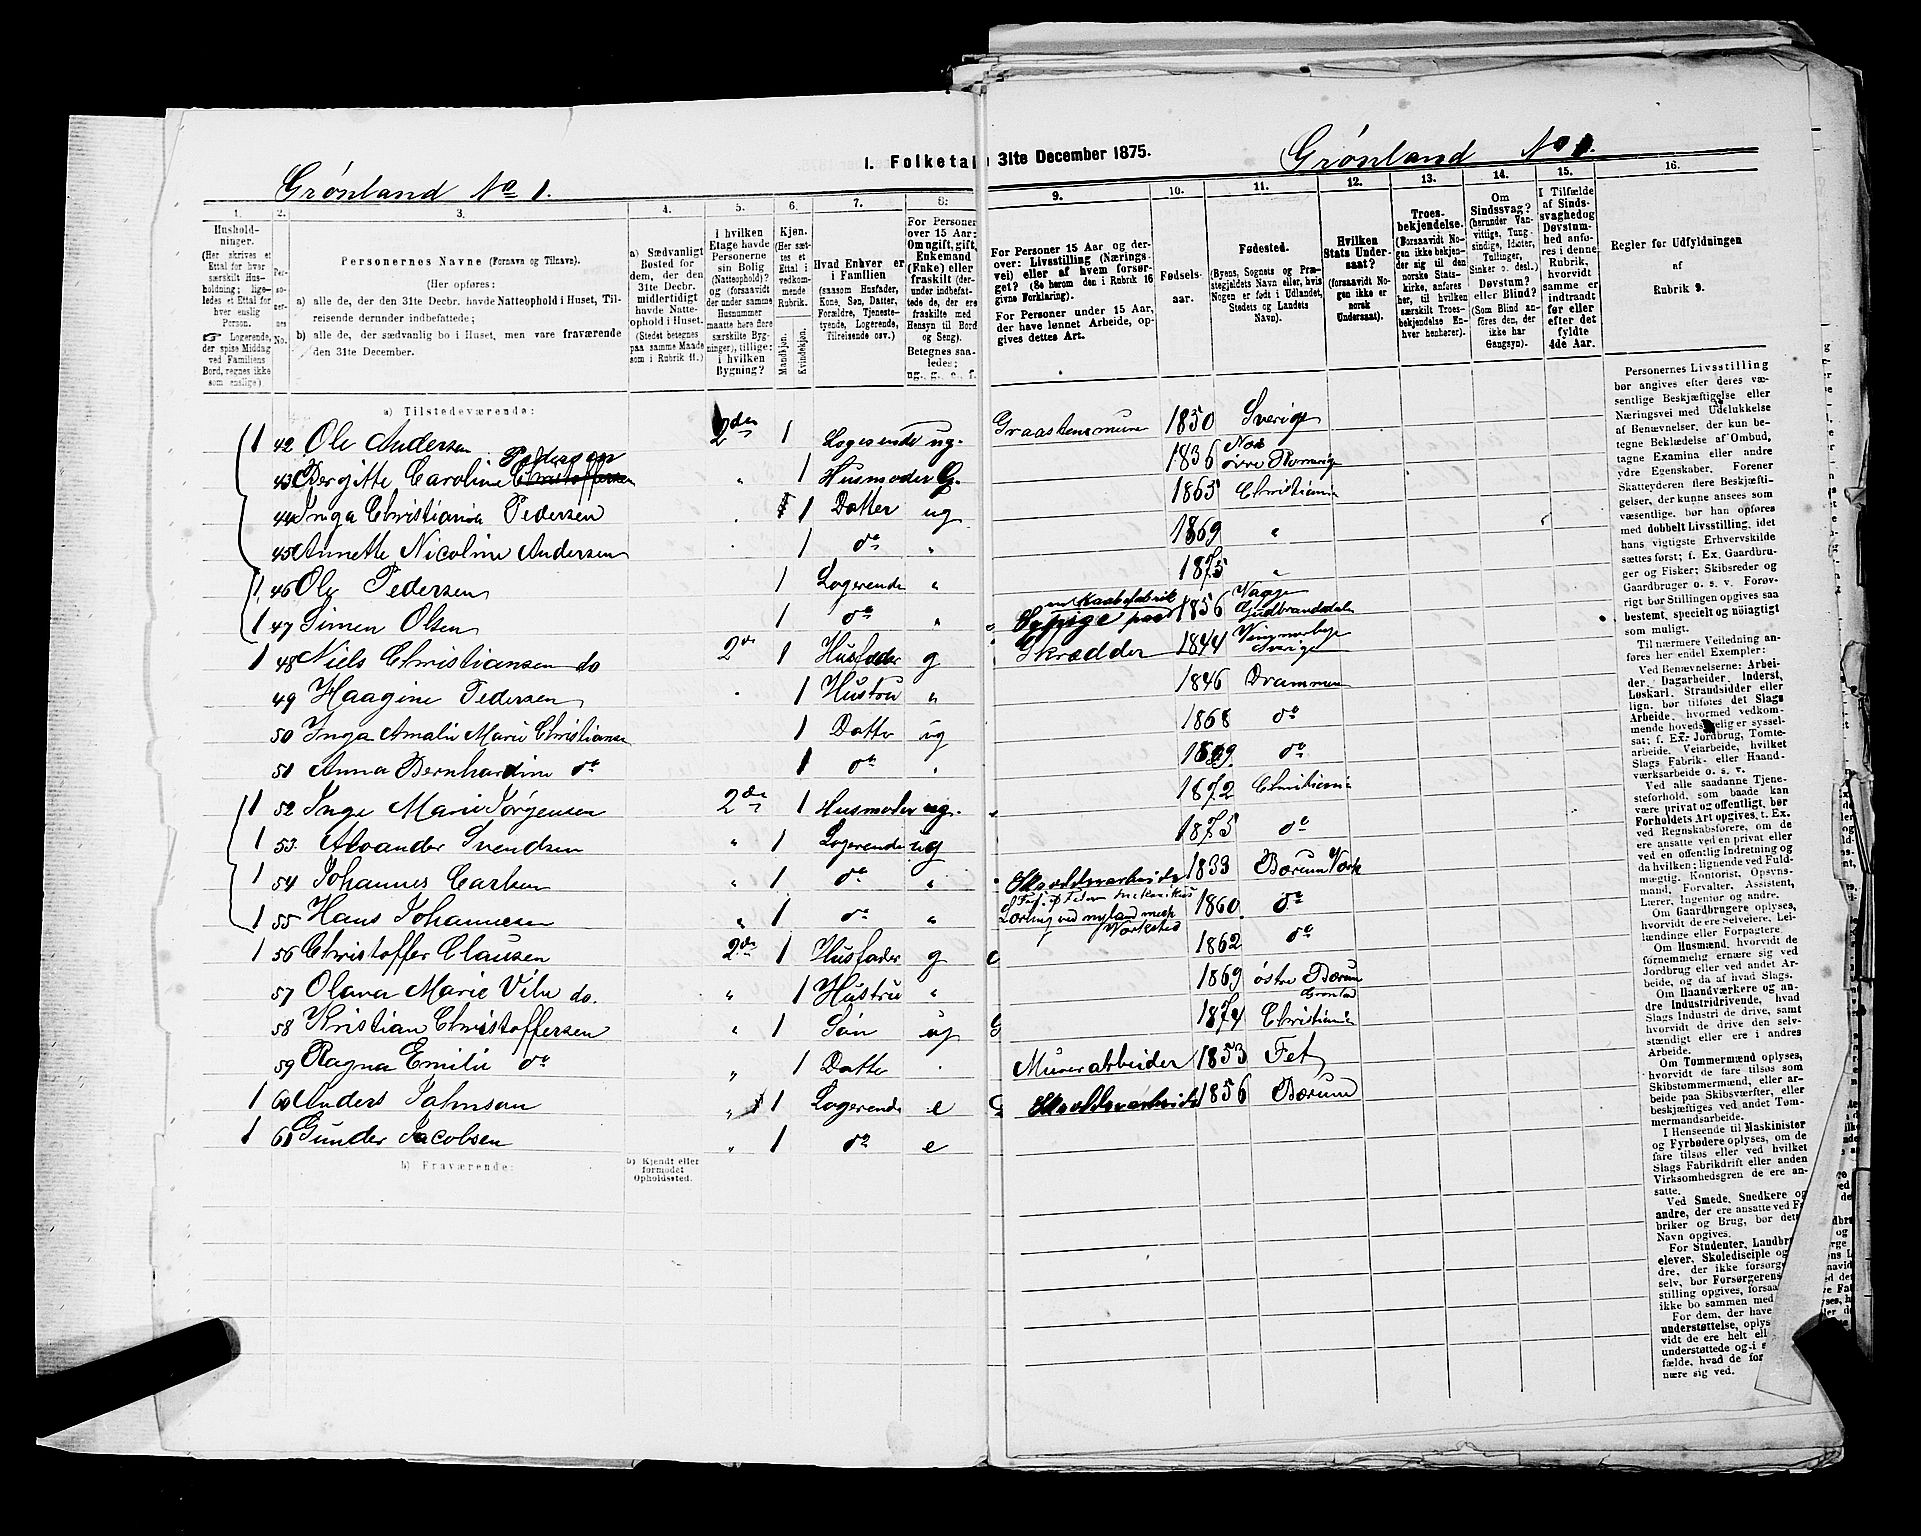 Grönland No 1.
1. Folketal
1. Husholdninger. (Her skrives et Ettal for hver særskilt Husholdning; ligeledes et Ettal for hver enslig Person. Logerende, der spise Middag ved Familiens Bord, regnes ikke som enslige)
2. Personernes No.
3. Personernes Navne (Fornavn og Tilnavn).
(Her opføres:
a) alle de, der den 31te Decbr. havde Natteophold i Huset, Tilreisende derunder indbefattede;
b) alle de, der sædvanlig bo i Huset, men vare fraværende den 31te December.
4. a) Sædvanligt Bosted for dem, der den 31te Decbr. midlertidigt havde Natteophold i Huset. (Stedet betegnes paa samme Maade som i Rubrik 11.)
5. I hvilken Etage havde Personerne sin Bolig (Natteophold)? og (forsaavidt der under samme Husnummer maatte høre flere særskilte Bygninger), tillige: i hvilken Bygning?
6. Kjøn. (Her sættes et Ettal i vedkommende Rubrik. Mandkjøn. Kvindekjøn.
7. Hvad Enhver er i Familien (saasom Husfader, Kone, Søn, Datter, Forældre, Tjenestetyende, Logerende, Tilreisende osv.)
8. For Personer over 15 Aar: Om ugift, gift, Enkemand (Enke) eller fraskilt (derunder indbefattede de, der ere fraskilte med Hensyn til Bord og Seng). Betegnes saaledes; ug., g., e., f.
a) Tilstedeværende:
1 42 Ole Andersen 2den 1 Logerende ug.
43 Bergitte Caroline Christoffersen Pedersen „ 1 Husmoder G.
44 Inga Christianda Pedersen 1 Datter ug
45 Annette Nicoline Andersen 1 do „
1 46 Ole Pedersen 1 Logerende „
1 47 Simen Olsen 1 do „
1 48 Niels Christiansen do 2de 1 Husfader g
49 Haagine Pedersen 1 Hustru „
50 Inga Amalie Marie Christianse 1 Datter ug
51 Anna Bernhardine do 1 do
1 52 Inge Marie Jörgensen 2de 1 Husmoder ug.
1 53. Alvander Svendsen „ 1 Logerende ug
1 54 Johannes Carlsen „ 1 do „
1 55 Hans Johannesen „ 1 do „
1 56 Christoffer Clausen 2de 1 Husfader g
57 Olava Marie Vilu do. „ 1 Hustru „
58 Kristian Christoffersen „ 1 Sön ug
59 Ragna Emilie do „ 1 Datter
1 60 Anders Johnson „ 1 Logerende e
1 61 Gunder Jacobsen „ 1 do e
b) Fraværende:
b) Kjendt eller formodet Opholdssted.
31te December 1875.
Grönland No 1.
9. For Personer 15 Aar og derover: Livsstilling (Næringsvei) eller af hvem forsørget? (Se herom den i Rubrik 16 givne Forklaring).
For Personer under 15 Aar, der have lønnet Arbeide, opgives dettes Art.
10. Fødselsaar.
11. Fødested. (Byens, Sognets og Præstegjeldets Navn eller, hvis Nogen er født i Udlandet, Stedets og Landets Navn).
12. Hvilken Stats Undersaat? (forsaavidt Nogen ikke er norsk Undersaat).
13. Troesbekjendelse. (Forsaavidt Nogen ikke bekjender sig til den norske Statskirke, anføres her, til hvilken særskilt Troesbekjendelse Enhver henhører).
14. Om Sindssvag? (herunder Vanvittige, Tungsindige, Idioter, Tullinger, Sinker o. desl.) Døvstum? eller Blind? (Som Blind anføres den, der ikke har Gangsyn).
15. I Tilfælde af Sindssvaghed og Døvstumhed anføres i denne Rubrik, hvorvidt samme er indtraadt før eller efter det fyldte 4de Aar.
16. Regler for Udfyldningen af Rubrik 9.
Graastensmurer 1850 Sverige
1836 Nes övre Romerige
1863 Christiania
1869 „
1875 „
Seppige paa en Kaabefabrik 1856 Vaage Gudbrandsdalen
Skrædder 1844 Sverige
1846 Drammen
1868 do
1869. do
1872 Christiania
1875 do
1833 Bærum Værk
Læring ved nyland mech Værksted 1860. do
1862 do
1869 östre Bærum
1874 Grönland Christiania
Murerarbeider 1853 Fet
1856 Bærum
Personernes Livsstilling bør angives efter deres væsentlige Beskjæftigelse eller Næringsvei med Udelukkelse af Benævnelser, der kun betegne Beklædelse af Ombud, tagne Examina eller andre ydre Egenskaber. Forener Skatteyderen flere Beskjæftigelser, der kunne ansees som væsentlige, bør han opføres med dobbelt Livsstilling, idet hans vigtigste Erhvervskilde sættes først; f. Ex. Gaardbruger og Fisker; Skibsreder og Gaardbruger o. s. v. Forøvrigt bør Stillingen opgives saa bestemt, specielt og nøiagtigt som muligt.
Til nærmere Veiledning anføres her endel Exempler:
Ved Benævnelserne: Arbeider, Dagarbeider, Inderst, Løskarl, Strandsidder eller lign. bør tilføies det Slags Arbeide, hvormed vedkommende hovedsagelig er sysselsat; f. Ex. Jordbrug, Tomtearbeide, Veiarbeide, hvilket Slags Fabrik- eller Haandværksarbeide o. s. v.
Ved alle saadanne Tjenesteforhold, som baade kan være privat og offentligt, bør Forholdets Art opgives, t. Ex. ved Regnskabsførere, om de ere ansatte ved en privat eller ved en offentlig Indretning og da hvilken; lignende ved Fuldmægtig, Kontorist, Opsynsmand, Forvalter, Assistent, Lærer, Ingeniør og andre.
Om Gaardbrugere oplyses, hvorvidt de ere Selveiere, Leilændinge eller Forpagtere.
Om Husmænd, hvorvidt de fornemmelig ernære sig ved Jordbrug eller ved andet Arbeide, og da af hvad Slags.
Om Haandværkere og andre Industridrivende, hvad Slags Industri de drive, samt hvorvidt de drive den selvstændigt eller ere i andres Arbeide.
Om Tømmermænd oplyses, hvorvidt de fare tilsøs som Skibstømmermænd, eller arbeide paa Skibsværfter, eller beskjæftiges ved andet Tømmermandsarbeide.
I Henseende til Maskinister og Fyrbødere oplyses, om de fare tilsøs eller ved hvilket Slags Fabrikdrift eller anden Virksomhedsgren de ere ansatte.
Ved Smede, Snedkere og andre, der ere ansatte ved Fabriker og Brug, bør dettes Navn opgives.